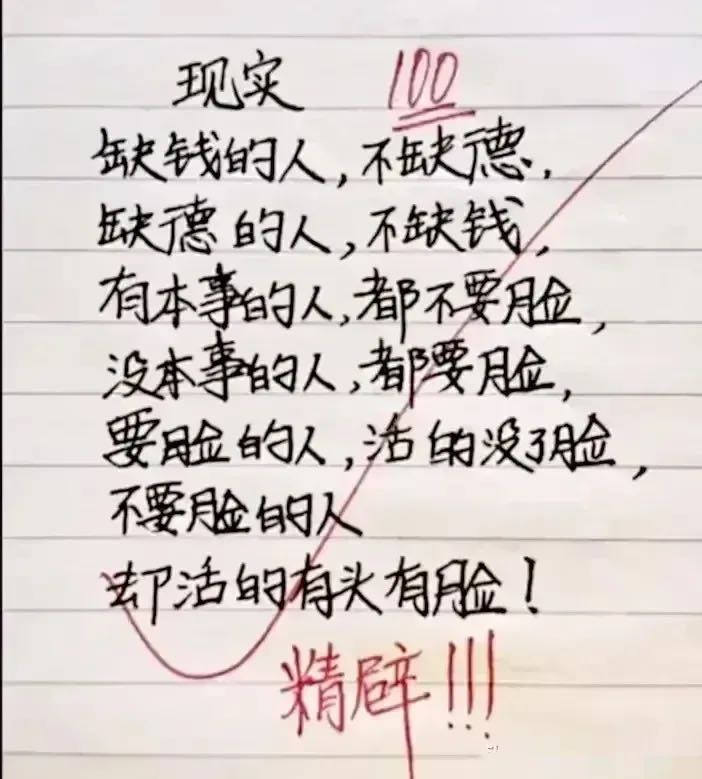 现实 100
缺钱的人,不缺德,
缺德的人,不缺钱,
有本事的人,都不要脸,
没本事的人,都要脸,
要脸的人,活的没了脸,
不要脸的人
却活的有头有脸!
精辟!!!